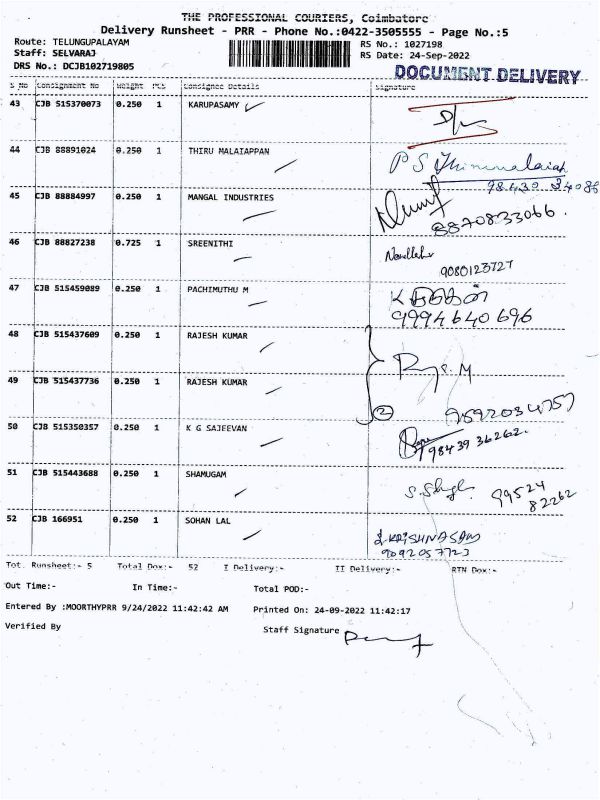 THE PROFESSIONAL COURIERS, Coimbatore
Delivery Runsheet - PRR - Phone No.:0422-3505555 - Page No.:5
Route: TELUNGUPALAYAM
RS No.: 1027198
Staff: SELVARAJ
RS Date: 24-Sep-2022
DRS No.: DCJB102719805
DOCUMENT DELIVERY
S No Consignment No Weight Pcs Consignee Details Signature
43 CJB 515370073 0.250 1 KARUPASAMY
44 CJB 88891024 0.250 1 THIRU MALAIAPPAN
P S
45 CJB 88884997 0.250 1 MANGAL INDUSTRIES
8870833066.
46 CJB 88827238 0.725 1 SREENITHI
9080123727
47 CJB 515459089 0.250 1 PACHIMUTHU M
9994640696
48 CJB 515437609 0.250 1 RAJESH KUMAR
49 CJB 515437736 0.250 1 RAJESH KUMAR
2
50 CJB 515350357 0.250 1 K G SAJEEVAN
9843936262.
51 CJB 515443688 0.250 1 SHAMUGAM
99524
82262
52 CJB 166951 0.250 1 SOHAN LAL
KRISHNASAM
9092057723
Tot. Runsheet:- 5 Total Dox:- 52 I Delivery:- II Delivery:- RTN Dox:-
Out Time:- In Time:- Total POD:-
Entered By :MOORTHYPRR 9/24/2022 11:42:42 AM Printed On: 24-09-2022 11:42:17
Verified By Staff Signature